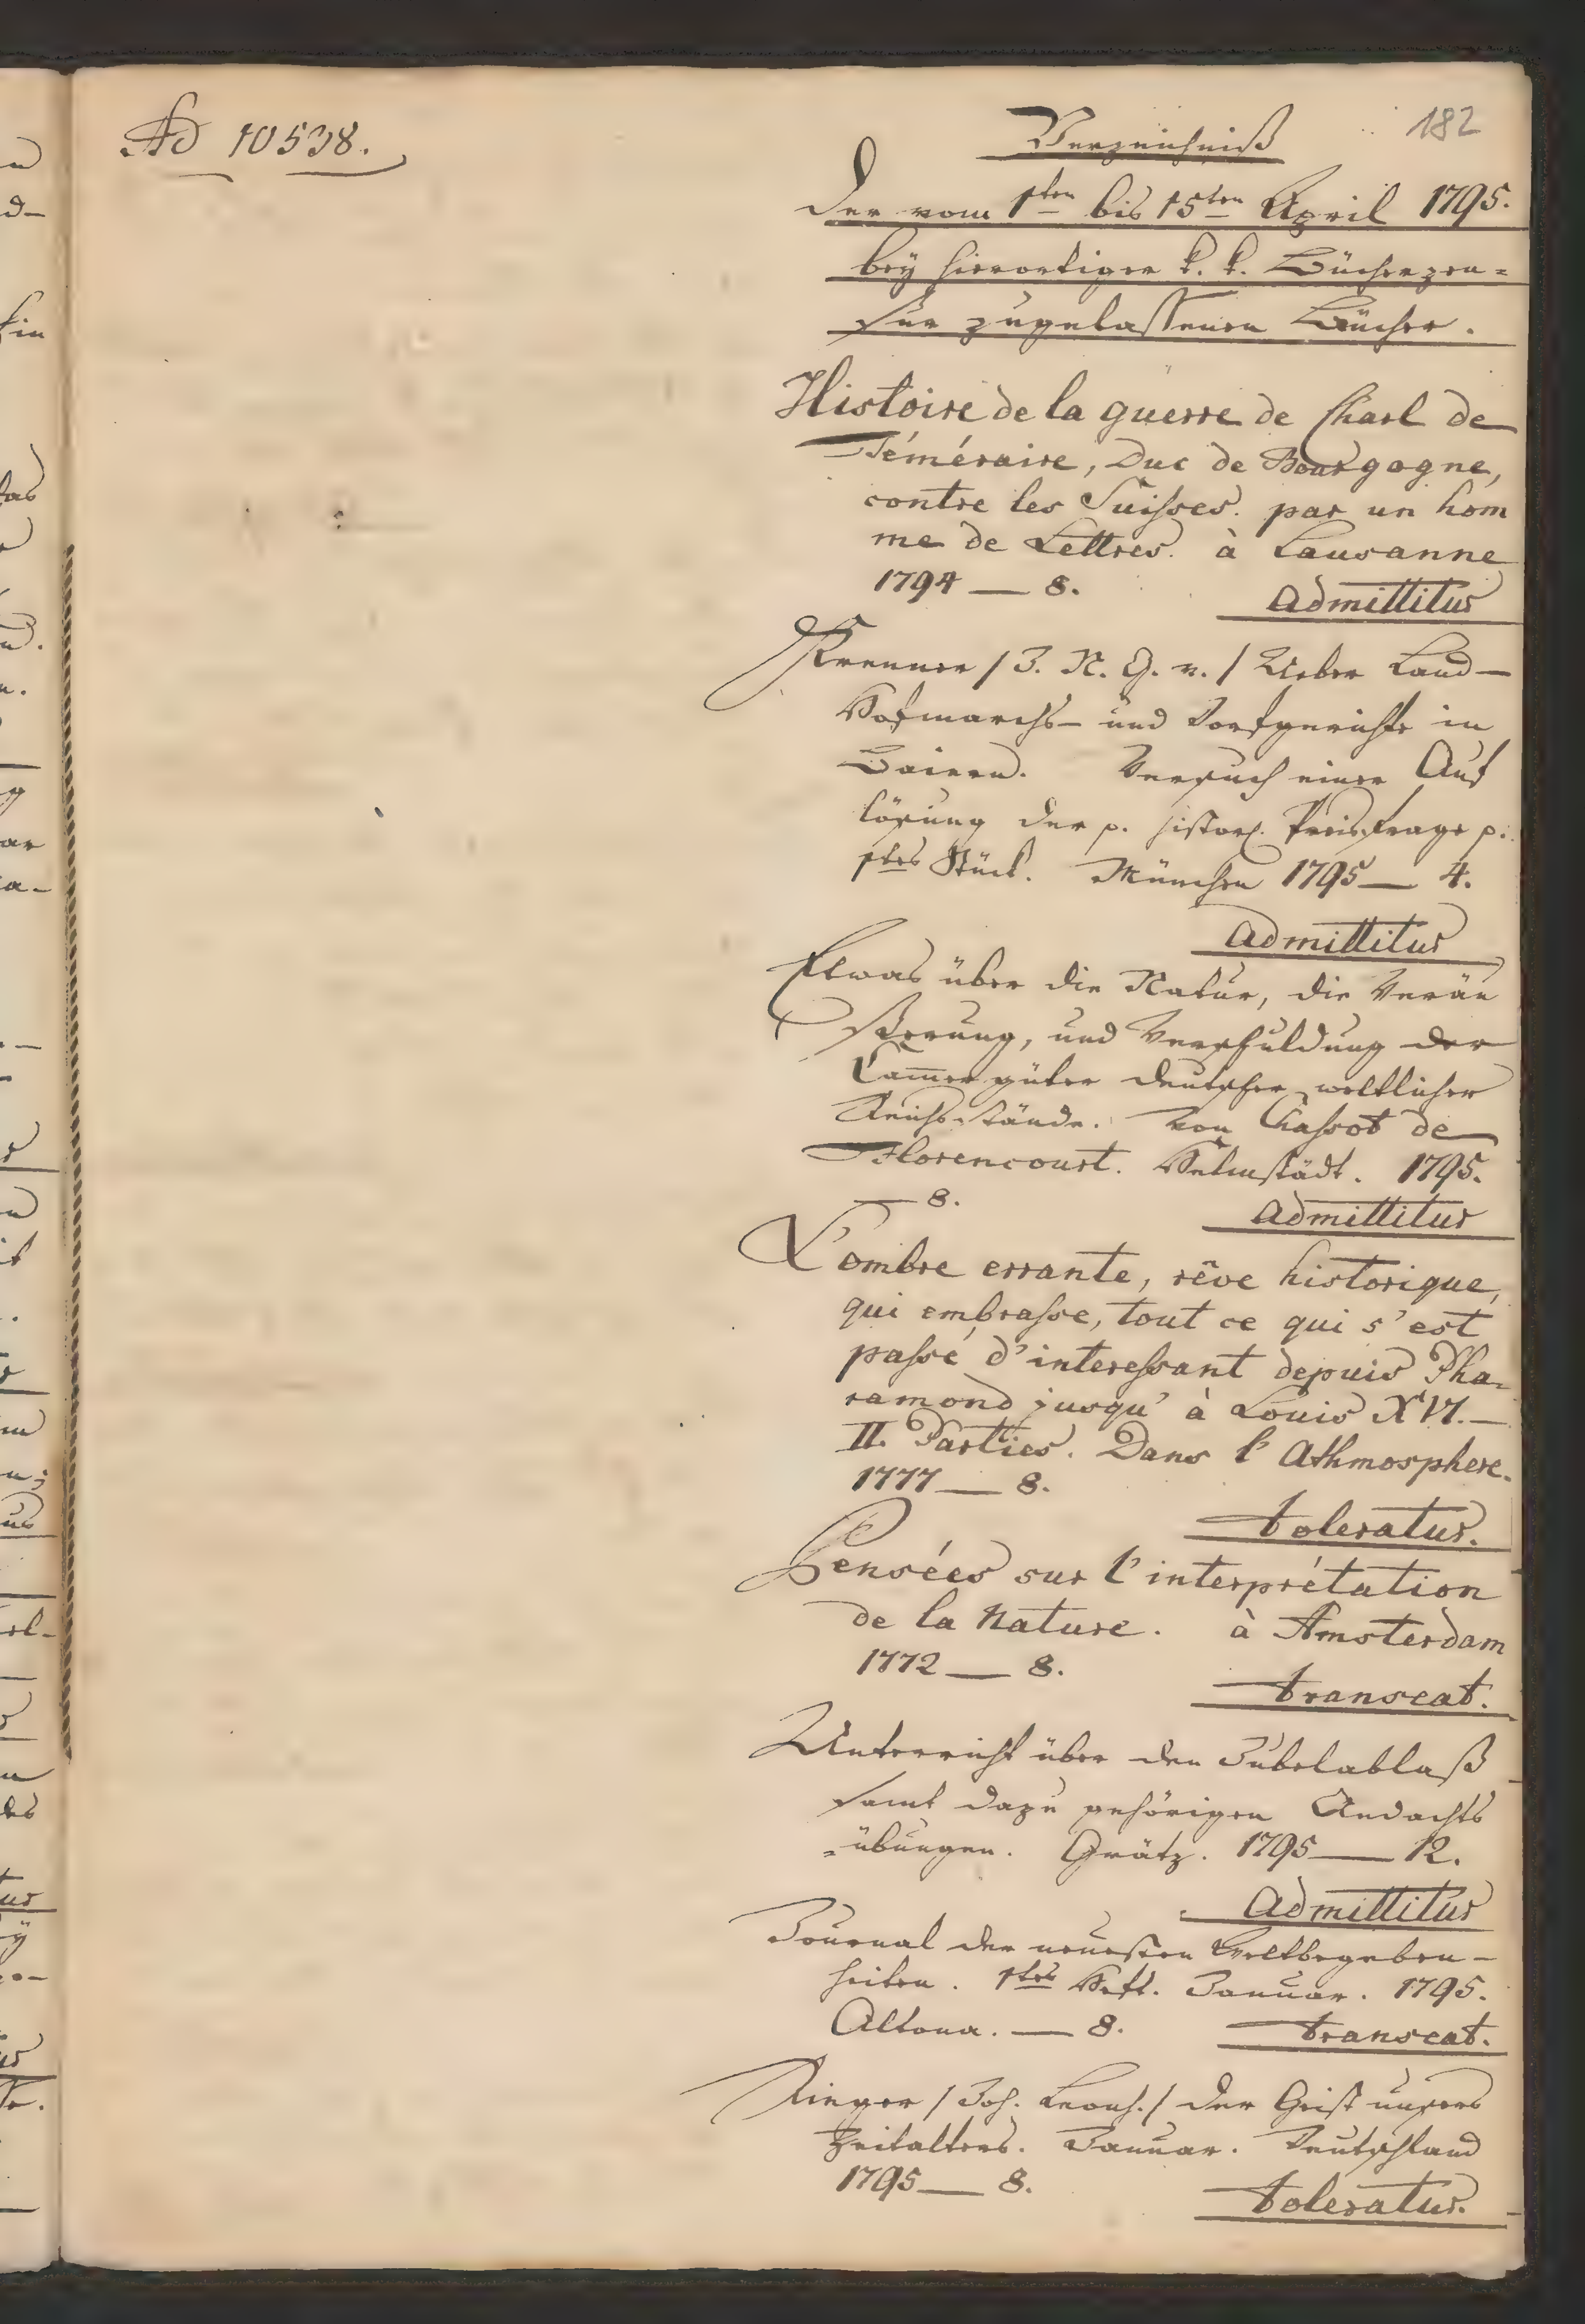 Ad 10538.
182
Verzeichniß
der vom 1ten bis 15ten April 1795.
bey hierortiger k. k. Bücherzen=
sur zugelassenen Bücher.
Histoire de la guerre de Charl de
Téméraire, Duc de Bourgogne,
contre les Suisses. par un hom
me de Lettres. à Lausanne
1794 — 8.
Admittitur
Krenner / J. N. G. v. / Ueber Land—
Hofmarchs— und Dorfgerichte in
Baiern. Versuch einer Auf
lösung der p. histor. Preisfrage p.
1tes Stück. München 1795 — 4.
Admittitur
Etwas über die Natur, die Veräu
ßerung, und Verschuldung der
Cam̅ergüter deutscher weltlicher
Reichsstände. Von Chassot de
Florencourt. Helmstädt. 1795.
— 8.
Admittitur
L'ombre errante, rêve historique,
qui embrasse, tout ce qui s'est
passé d'interessant depuis Pha-
ramond jusqu' à Louis XVI. —
II. Parties. Dans l' Athmosphere.
1777 — 8.
toleratur.
Pensées sur l'interprétation
de la Nature. à Amsterdam
1772 — 8.
transeat.
Unterricht über den Jubelablaß
samt dazu gehörigen Andachts
=übungen. Grätz. 1795 — 12.
Admittitur
Journal der neuesten Weltbegeben—
heiten. 1tes Heft. Januar. 1795.
Altona. — 8. transeat.
Rieger / Joh. Leonh. / der Geist unsers
Zeitalters. Januar. Deutschland
1795 — 8.
toleratur.